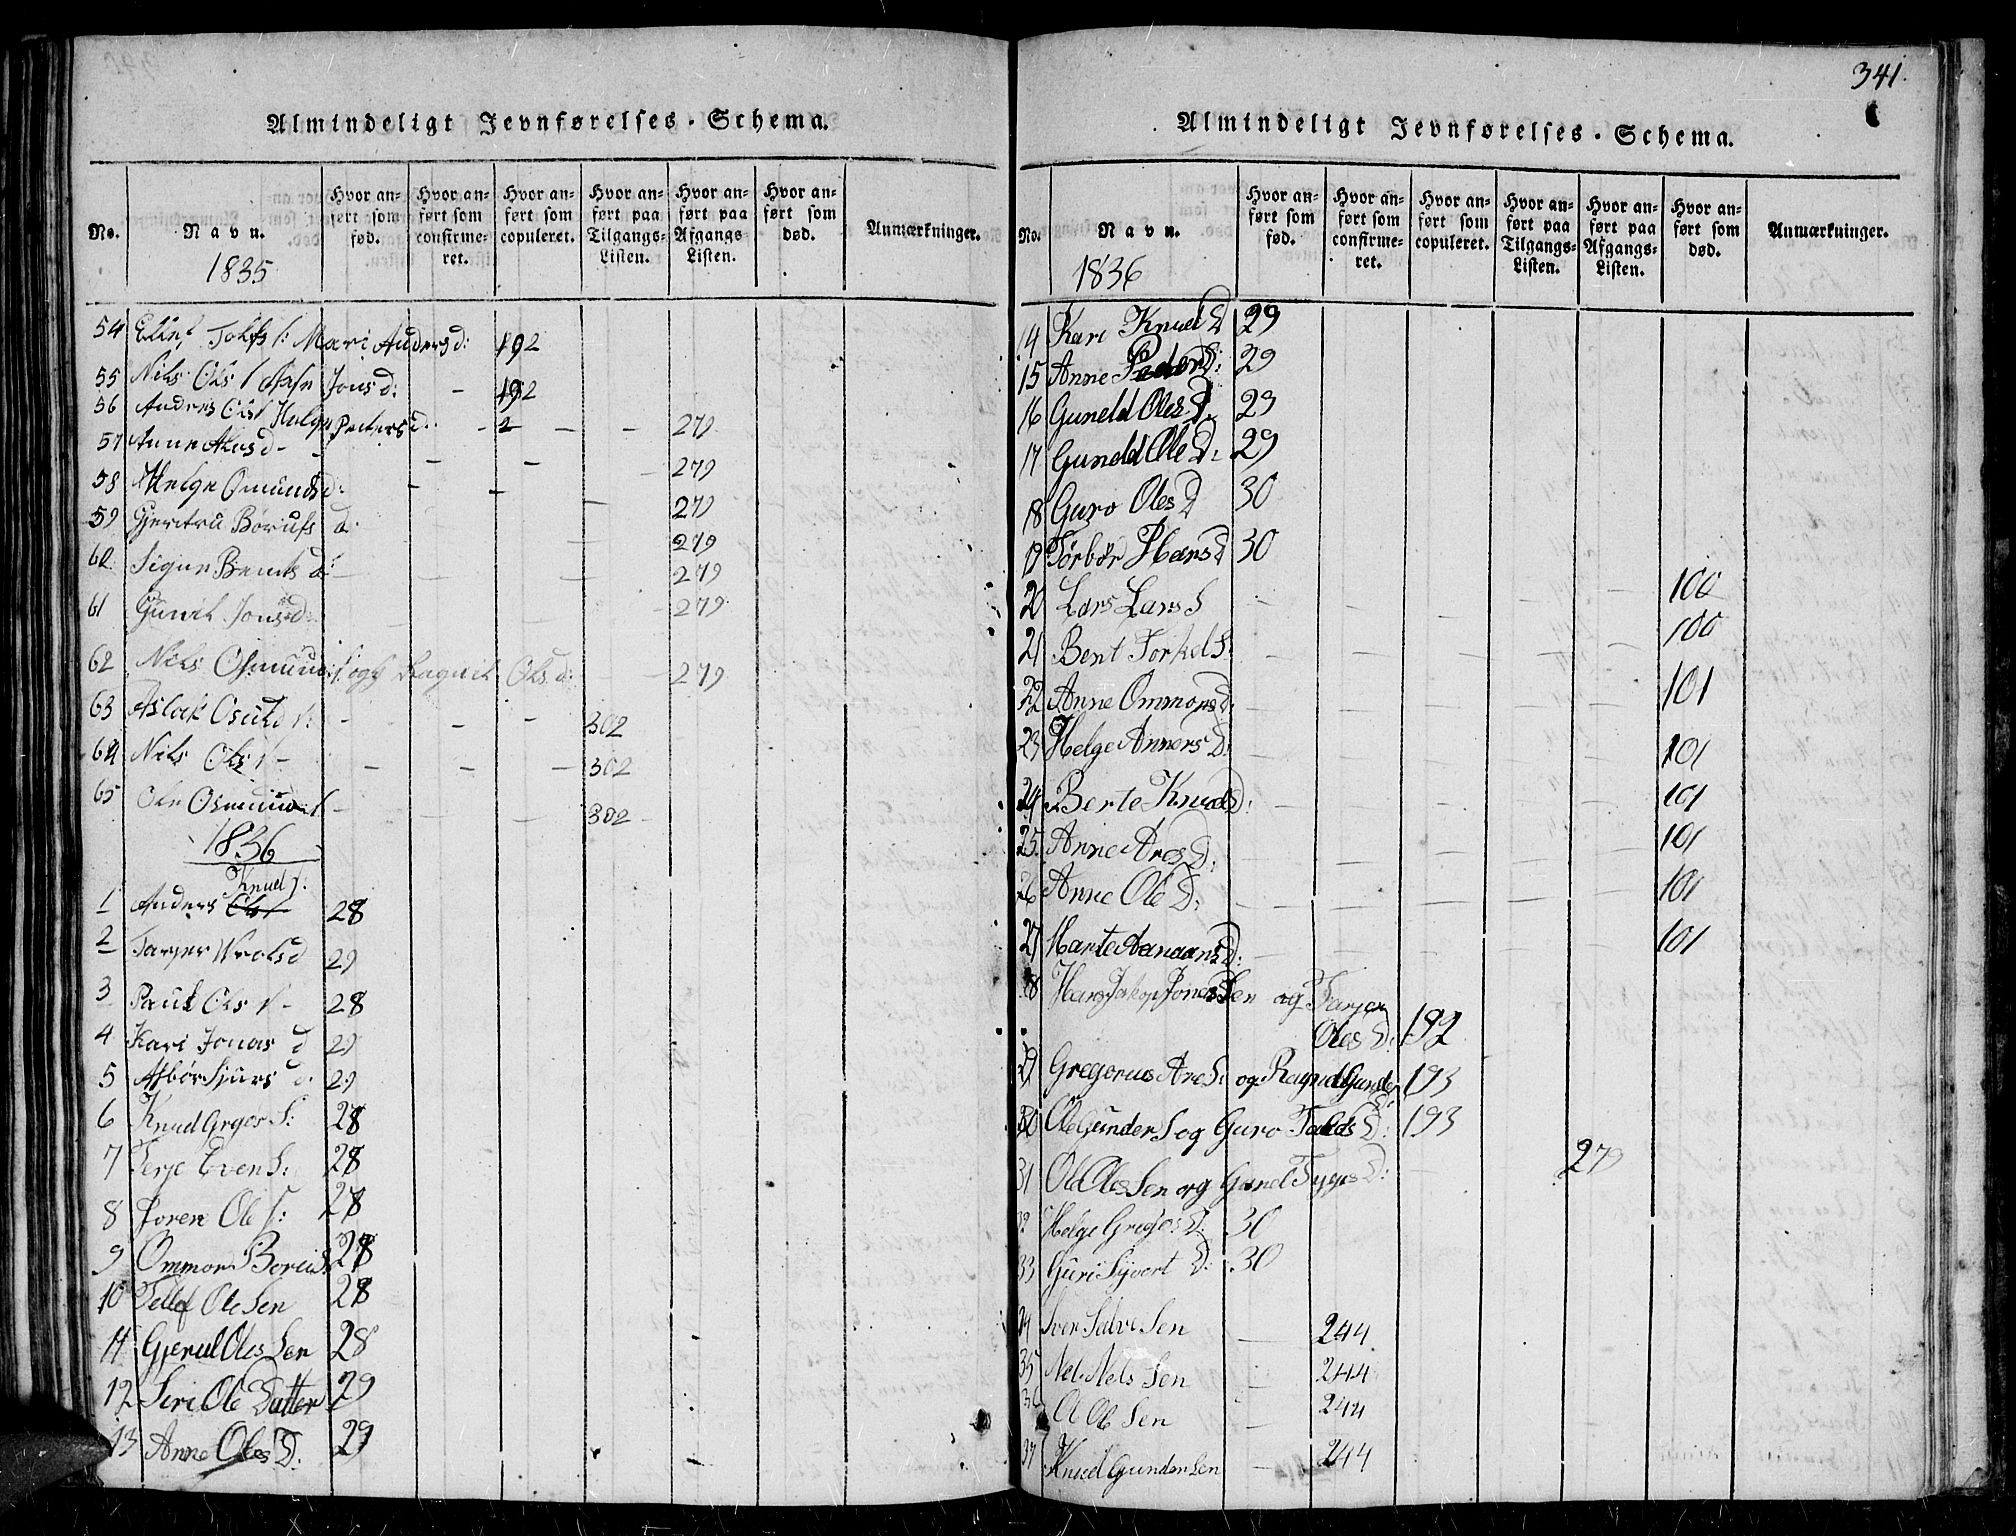 341.
Almindeligt Jevnførelses-Schema.
No.
Navn.
Hvor anført som fød.
Hvor anført som confirmeret.
Hvor anført som copuleret.
Hvor anført paa Tilgangs-Listen.
Hvor anført paa Afgangs Listen.
Hvor anført som død.
Anmærkninger.
1835
54 Mari Anders d: 192
55 Nils Ols Jons d: - 192
56 Anders Ols Helge Peders d: - 2 - - 279
57 Anne d - - - 279
58 Helge Omunds d: - - - 279
59 Gjertru d: 279
60 Signe Bents d: - - - 279
61 Gunil Jons d: - 279
62 Nils Osmund og Ragnil Ols d: - - 279
63 Aslak - - - 302
64 Nils Ols - - - - 302
65 Ole Osmund - - - 302 -
1836
Knud
1 Anders 28
2 Tarjer d 29
3 Paul Ols - 28
4 Kari Jonas d 29
5 Asbør Sjurs d. 29
6 Knud Grges S: 28
7 Terje Even S: 28
8 Joren Ole S: 28
9 Ommon 28
10 Tellef Ole Sen 28
11 Gjerul Oles Sen 28
12 Siri Ole Datter 29
13 Anne Oles D: 29
Almindeligt Jevnførelses-Schema.
No.
Navn.
Hvor anført som fød.
Hvor anført som confirmeret.
Hvor anført som copuleret.
Hvor anført paa Tilgangs-Listen.
Hvor anført paa Afgangs-Listen.
Hvor anført som død.
Anmærkninger.
1836
14 Kari Knud D 29
15 Anne Peder D: 29
16 Guneld Oles D. 29
17 Guneld Ole D. 29
18 Guro Oles D 30
19 Tørbør Hans D 30
20 Lars Lars S - - - - - 100
21 Bent Torkel S: - - - - - 100
22 Anne Ommons D: - - - - - 101
23 Helge Anners D: - - - - - 101
24 Berte Knuds D: - - - - - 101
25. Anne Ares D: - - - - - 101
26 Anne Ole D: - - - - - 101
27 Marte Aanaans D: - - - - - 101
28 Hans Jakop Jones Sen og Tarjer
Oles D: 192
29 Gregorius Are S: og Ragnel Gunder D: 193
30 Ole Gunder S og Guro D: 193
31 Ole Oles Sen og Gunel Tyges D: - - 279
32 Helge Greges D: 30
33 Guri Syvert D: 30
34 Iver Salve Sen - 244
35 Nels Nels Sen - 244
36 Ol Ole Sen - 244
37 Knud Gunder Sen - 244